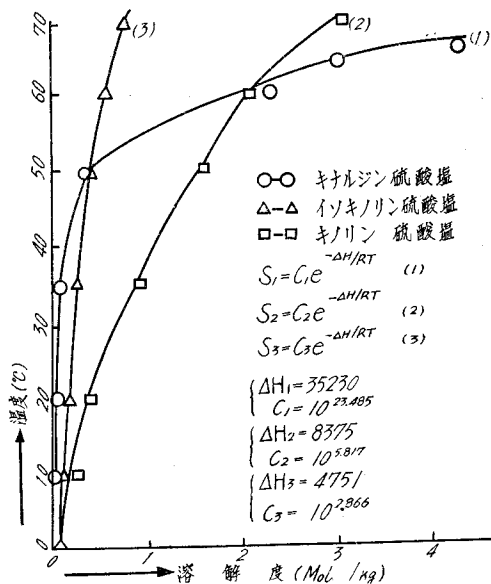 70
60
50
40
30
20
10
0
(3)
(2)
(1)
○-○ キナルジン硫酸塩
△-△ イソキノリン硫酸塩
□-□ キノリン 硫酸塩
S₁=C₁e^-ΔH/RT (1)
S₂=C₂e^-ΔH/RT (2)
S₃=C₃e^-ΔH/RT (3)
ΔH₁=35230
C₁=10^23.485
ΔH₂=8375
C₂=10^5.817
ΔH₃=4751
C₃=10^2.866
温度(℃)
0 1 2 3 4
溶解度(Mol/kg)